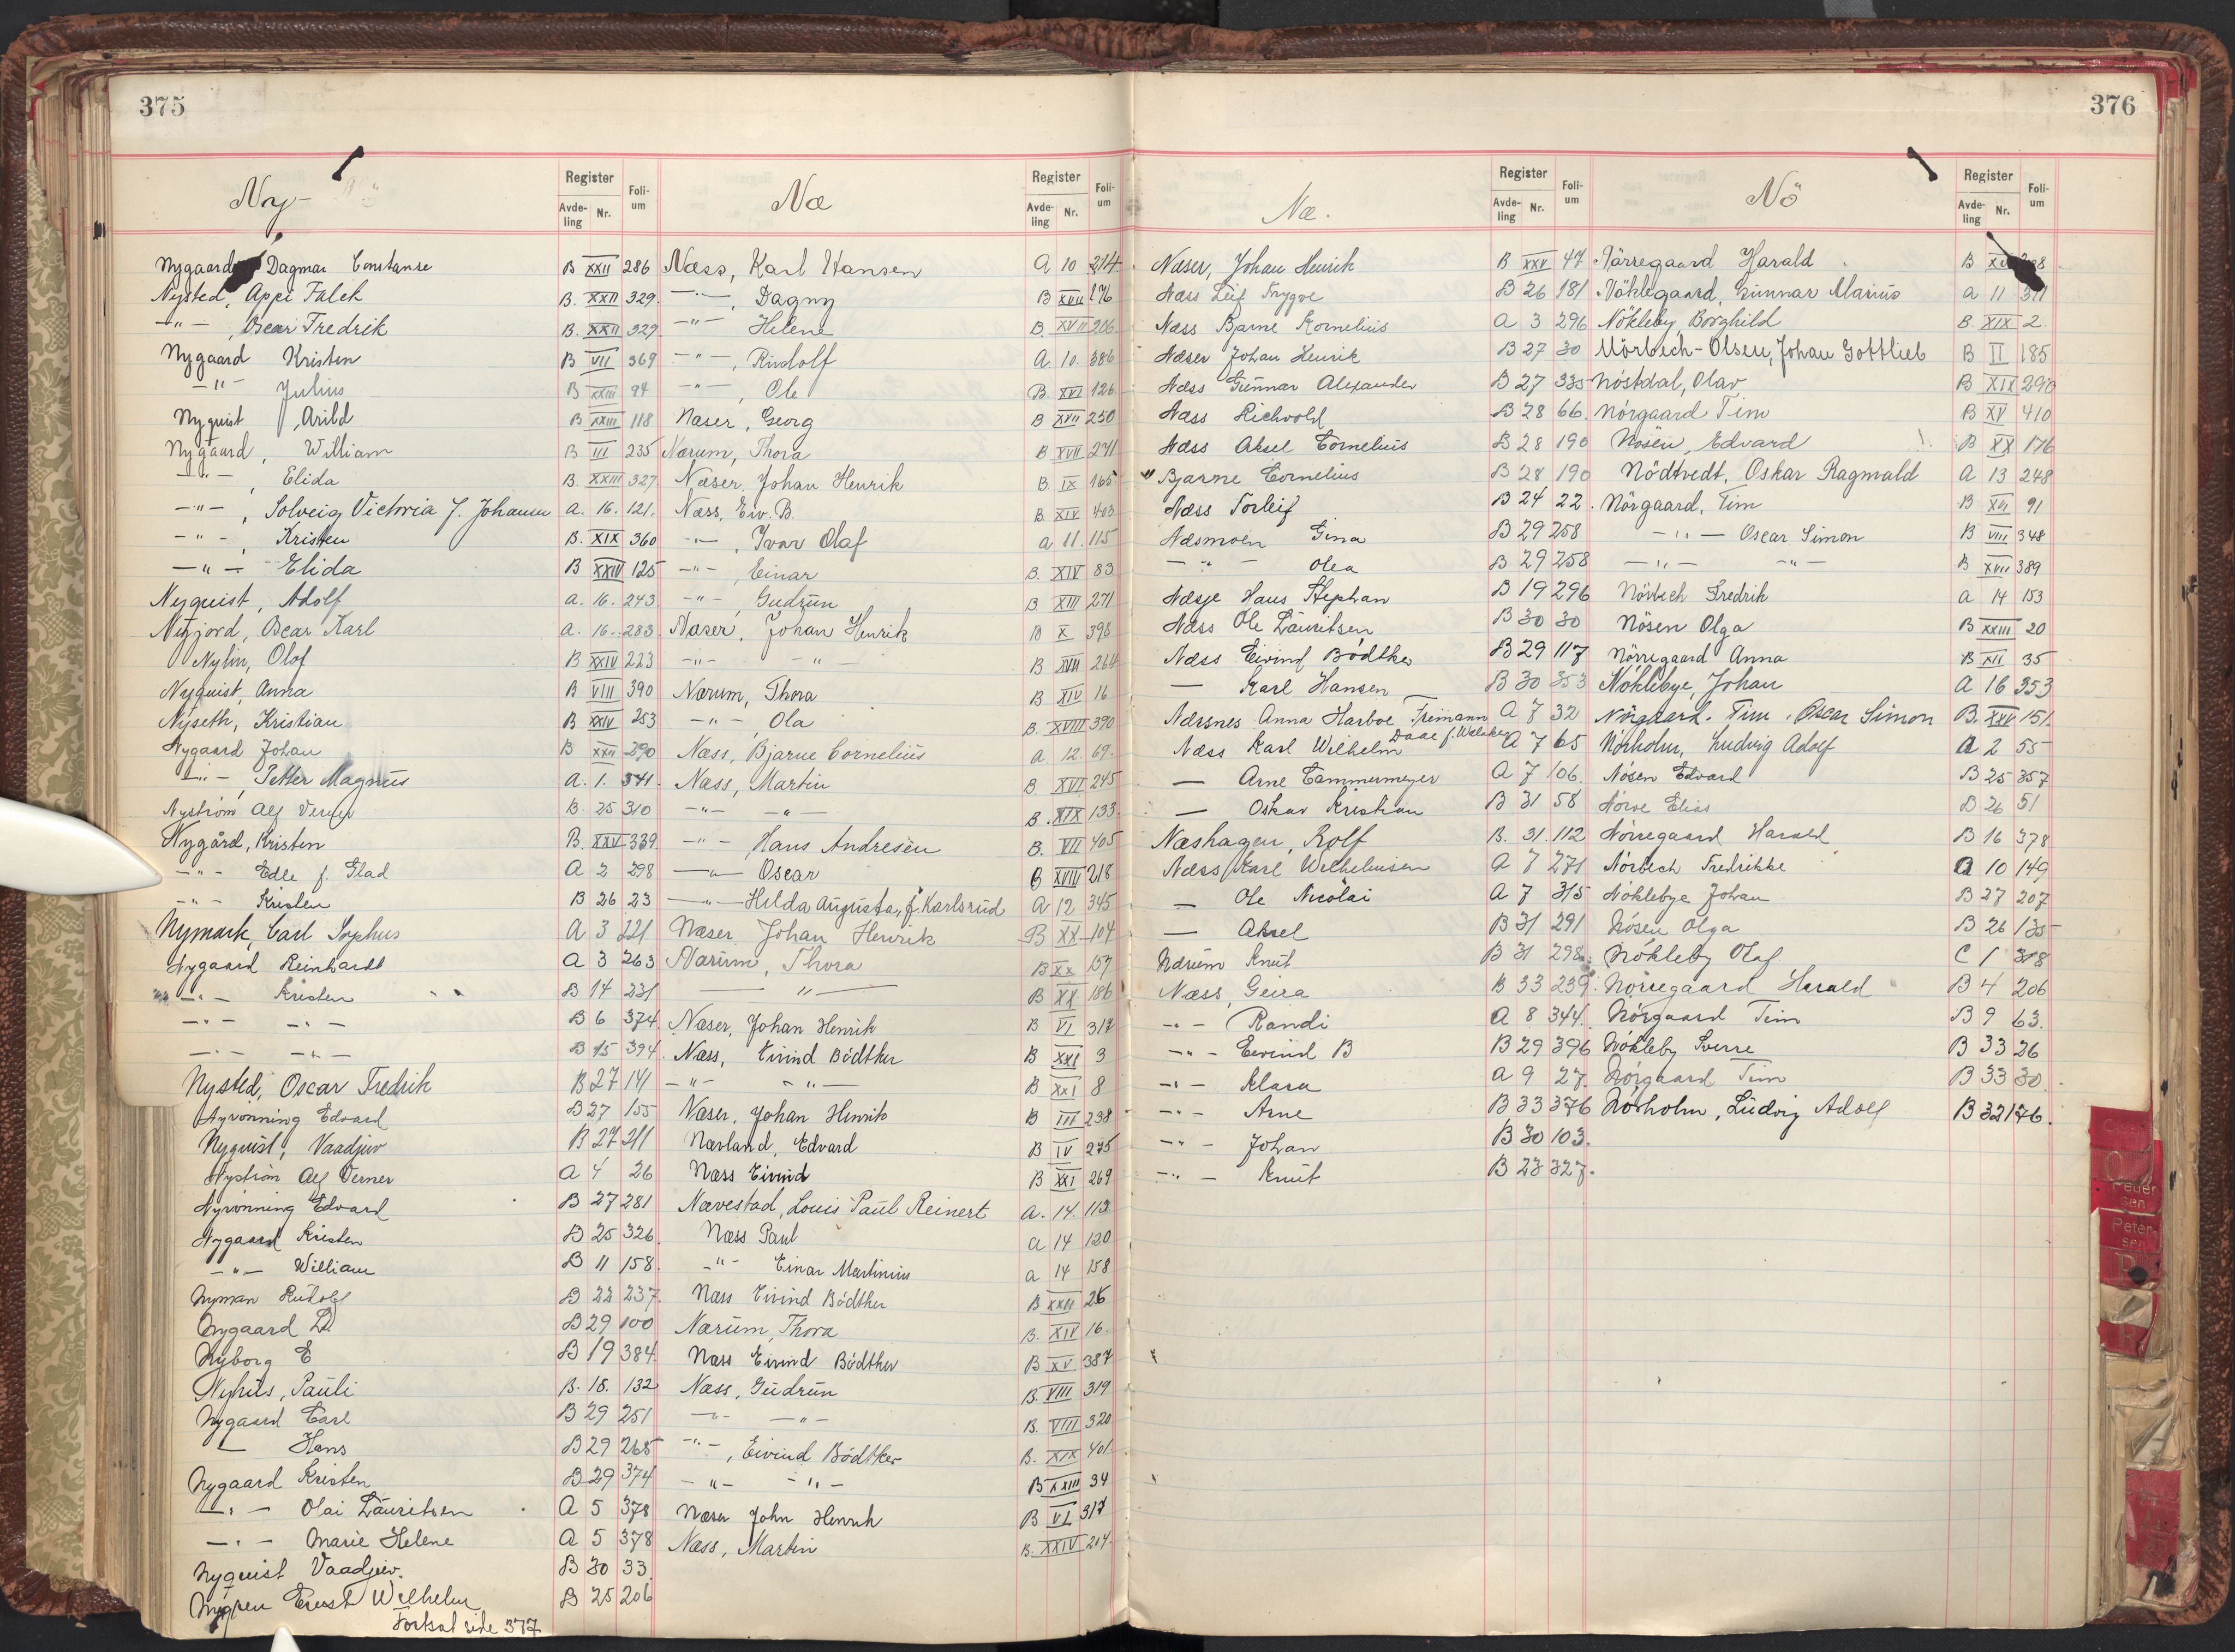 375
Ny-
Register
Avde-ling Nr.
Foli-um
Nygaard Dagmar Constanse B XXII 286
Nysted, Appi Falck B. XXII 329.
-"- , Oscar Fredrik B. XXII 329
Nygaard Kristen B VII 369
-"- Julius B XXIII 94
Nyquist, Arild B XXIII 118
Nygaard, William B III 235
-"- , Elida B. XXIII 327
-"- , Solveig Victoria f. Johansen A. 16. 121.
-"- , Kristen B. XIX 360
-"- Elida B XXIV 125
Nyquist, Adolf A. 16. 243
Nyfjord, Oscar Karl A. 16. 283
Nylin, Olof B XXIV 223
Nyquist, Anna B VIII 390
Nyseth, Kristian B XXIV 253
Nygaard Johan B XXII 290
-"- , Petter Magnus A. 1. 341.
Nyström Alf Verner B 25 310
Nygård, Kristen B. XXV 339
-"- Edle f. Glad A 2 298
-"- Kristen B 26 23
Nymark, Carl Sophus A 3 221
Nygaard Reinhardt A 3 263
-"- Kristen B 14 231
-"- -"- B 6 374
-"- -"- B 15 394
Nysted, Oscar Fredrik B 27 141
Nyrönning Edvard B 27 155
Nyquist, Vaadjuv B 27 211
Nyström Alf Verner A 4 26
Nyrönning Edvard B 27 281
Nygaard Kristen B 25 326
-"- William B 11 158
Nyman Rudolf B 22 237
Nygaard D. B 29 100
Nyborg E B 19 384
Nyhus, Pauli B. 18. 132
Nygaard Carl B 29 251
— Hans B 29 265
Nygaard Kristen B 29 374
-"- Olai Lauritsen A 5 378
-"- Marie Helene A 5 378
Nyquist Vaadjuv. B 30 33
Nygren Ernst Wilhelm B 25 206
Fortsat side 377
Næ
Register
Avde-ling Nr.
Foli-um
Næss, Karl Hansen A 10 214
-"- , Dagny B XVII 176
-"- Helene B. XVII 206
-"- , Rudolf A 10. 386
-"- , Ole B. XVI 126
Næser, Georg B XVII 250
Nærum, Thora B XVII 241
Næser, Johan Henrik B. IX 165
Næss, Eiv. B. B. XIV 403
-"- , Ivar Olaf A 11. 115
-"- , Einar B. XIV 83
-"- , Gudrun B XIII 271
Næser, Johan Henrik B X 398
-"- -"- B XVII 264
Nærum, Thora B XIV 16
-"- , Ola B. XVIII 390
Næss, Bjarne Cornelius A. 12. 69.
Næss, Martin B. XVI 245
-"- -"- B. XIX 133
-"- , Hans Andresen B. VII 405
-"- Oscar B XVIII 218
-"- Hilda Augusta, f. Karlsrud A 12 345
Næser, Johan Henrik B XX 104
Nærum, Thora B XX 157
— " — B XX 186
Næser, Johan Henrik B VI 317
Næss, Eivind Bödtker B XXI 3
-"- -"- B XXI 8
Næser, Johan Henrik B III 238
Nævland, Edvard B IV 275
Næss Eivind B XXI 269
Nævestad, Louis Paul Reinert A. 14. 113
Næss Paul A 14 120
-"- Einar Martinius A 14 158
Næss Eivind Bödtker B XXII 26
Nærum, Thora B. XIV 16.
Næss Eivind Bödtker B XV 387
Næss, Gudrun B. VIII 319
-"- -"- B. VIII 320
-"- , Eivind Bödtker B. XIX 401.
-"- -"- B XXIII 34
Næser John Henrik B VI 317
Næss, Martin B. XXIV 204.
376
Næ.
Register
Avde-ling Nr.
Foli-um
Næser, Johan Henrik B XXV 47
Næss Leif Trygve B 26 181
Næss Bjarne Kornelius A 3 296
Næser Johan Henrik B 27 30
Næss Gunnar Alexander B 27 335
Næss Richvold B 28 66.
Næss Aksel Cornelius B 28 190
" Bjarne Cornelius B 28 190
Næss Torleif B 24 22.
Næsmoen Gina B 29 258
-"- Olea B 29 258
Næsje Hans Stephan B 19 296
Næss Ole Lauritsen B 30 30
Næss Eivind Bödtker B 29 117
— Karl Hansen B 30 353
Næssnes Anna Harboe Freimann Daae f. A 7 32
Næss Karl Wilhelm A 7 65
— Arne Cammermeyer A 7 106.
— Oskar Kristian B 31 58
Næshagen, Rolf B. 31. 112
Næss Karl Wilhelmsen A 7 271
— Ole Nicolai A 7 315
— Aksel B 31 291
Nærum Knut B 31 298
Næss, Geira B 33 239
-"- Randi A 8 344.
-"- Eivind B B 29 396
-"- Klara A 9 27.
-"- Arne B 33 376
-"- Johan B 30 103.
-"- Knut B 23 327.
Nö
Register
Avde-ling Nr.
Foli-um
Nörregaard Harald B
Nöklegaard, Gunnar Marius A 11 311
Nökleby, Borghild B. XIX 2
Mörbech-Olsen, Johan Gottlieb B II 185
Nöstdal, Olav B XIX 290
Nörgaard Tim B XV 410
Nösen, Edvard B XX 176
Nödtvedt, Oskar Ragnvald A 13 248
Nörgaard, Tim B XVI 91
-"- Oscar Simon B VIII 348
-"- -"- B XVII 389
Nörbech Fredrik A 14 153
Nösen Olga B XXIII 20
Nörregaard Anna B XII 35
Nöklebye, Johan A 16 353
Nörgaard. Tim. Oscar Simon B. XXV 151.
Nörholm, Ludvig Adolf A 2 55
Nösen Edvard B 25 357
Nörve Elias B 26 51
Nörregaard Harald B 16 378
Nörbech Fredrikke A 10 149
Nöklebye Johan B 27 207
Nösen Olga B 26 135
Nökleby Olaf C 1 318
Nörregaard Harald B 4 206
Nörgaard Tim B 9 63.
Nökleby Sverre B 33 26
Nörgaard Tim B 33 30.
Nörholm, Ludvig Adolf B 32 176.
Peder-sen
Peter-sen